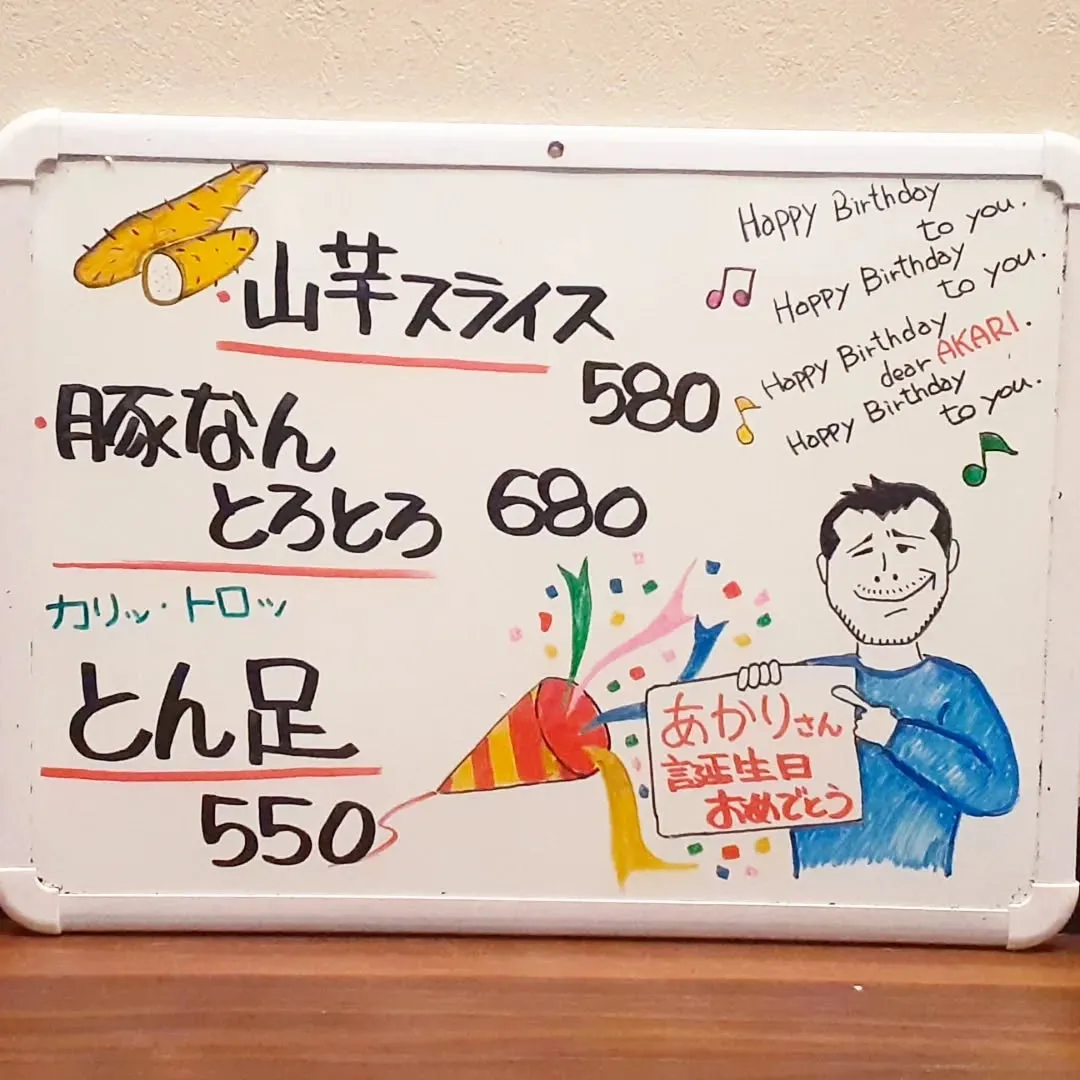 山芋スライス
580
豚なん
とろとろ 680
カリッ・トロッ
とん足
550
Happy Birthday
to you.
Happy Birthday
to you.
Happy Birthday
dear AKARI.
Happy Birthday
to you.
あかりさん
誕生日
おめでとう